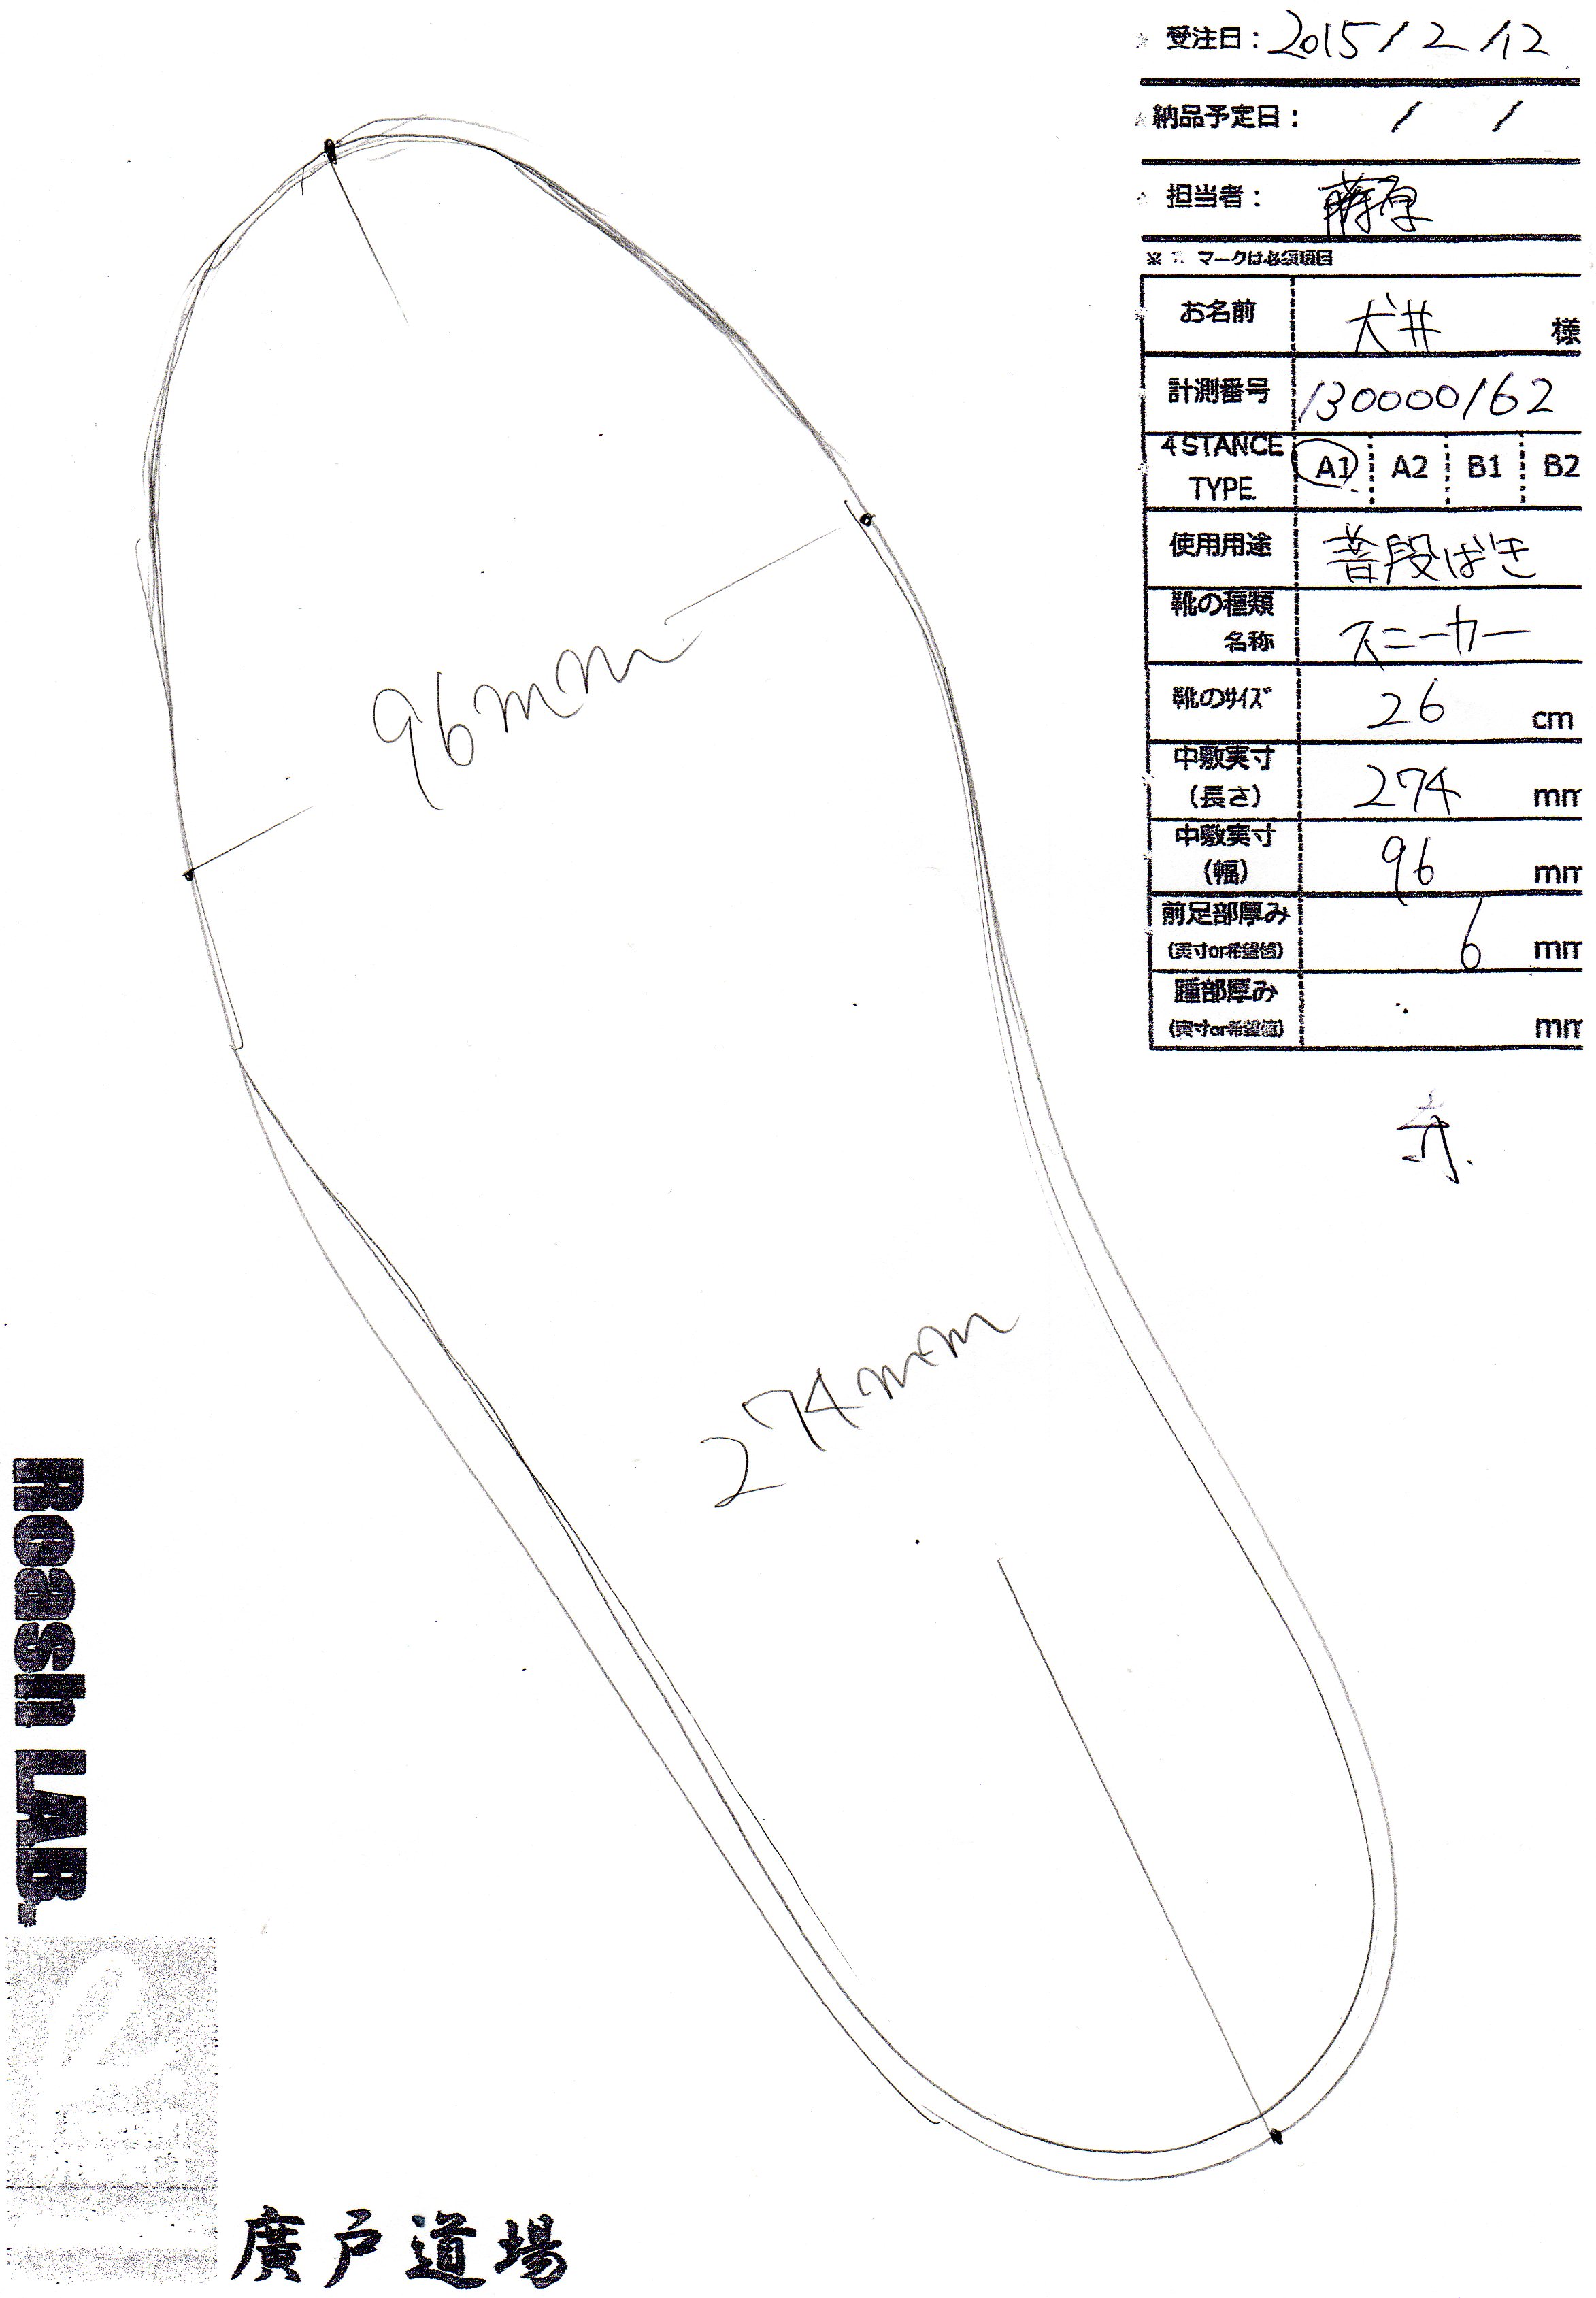 受注日：2015/2/12
納品予定日： / /
担当者： 藤原
※ マークは必須項目
お名前 犬井 様
計測番号 130000162
4 STANCE TYPE A1 A2 B1 B2
使用用途 普段ばき
靴の種類 名称 スニーカー
靴のサイズ 26 cm
中敷実寸 (長さ) 274 mm
中敷実寸 (幅) 96 mm
前足部厚み (実寸or希望値) 6 mm
踵部厚み (実寸or希望値) mm
96mm
274mm
Reash LAB.
廣戸道場